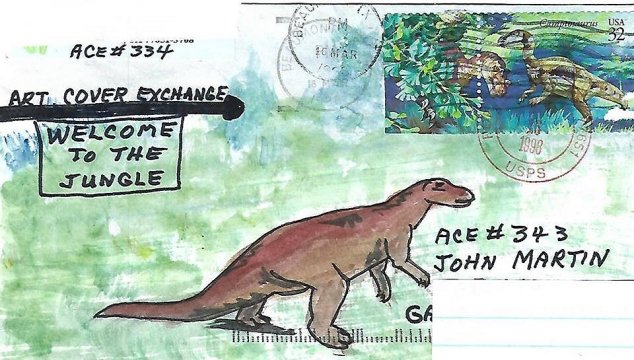 ACE # 334
ART COVER EXCHANGE
WELCOME
TO THE
JUNGLE
PM
MAR
Camptosaurus
USA
32
1998
USPS
ACE # 343
JOHN MARTIN
GA